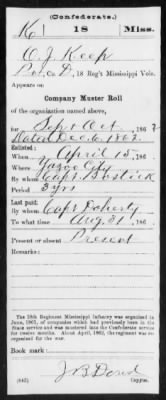 (Confederate.)
K 18 Miss.
O. J. Keep
Pvt, Co. D, 18 Reg't Mississippi Vols.
Appears on
Company Muster Roll
of the organization named above,
for Sept & Oct, 186
dated Dec. 6, 186
When April 15, 186
Where Yazoo City
By whom Capt. Bostick
Period 3 yrs
Last paid:
By whom Capt Doherty
To what time Aug 31, 186
Present or absent Present
Remarks:
The 18th Regiment Mississippi Infantry was organized in
June, 1861, of companies which had previously been in the
State service and was mustered into the Confederate service
for twelve months. About April, 1862, the regiment was re-
organized for the war.
Book mark:
(642) Copyist.